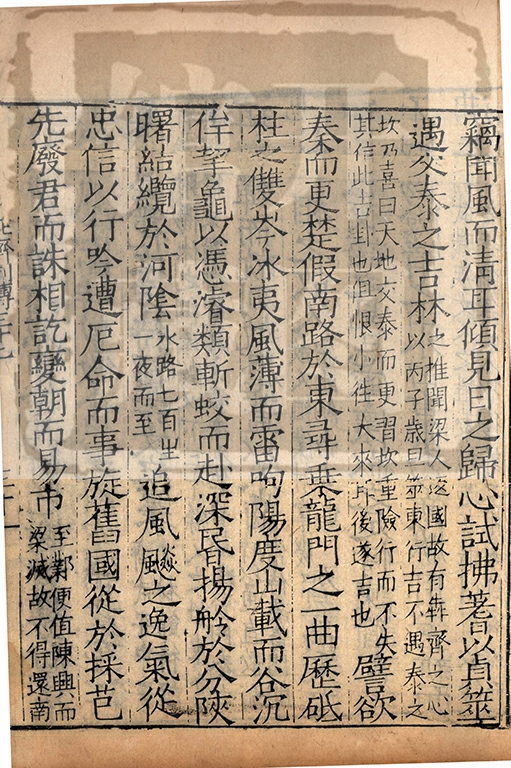 竊聞風而清耳傾見日之歸心試拂蓍以貞筮
遇交泰之吉林
之推聞梁人返國故有犇齊之心
以丙子歲旦筮東行吉不遇泰之
坎乃喜曰天地交泰而更習坎重險行而不失
其信此吉卦也但恨小往大來耳後遂吉也
譬欲
秦而更楚假南路於東尋乘龍門之一曲歷砥
柱之雙岑冰夷風薄而雷呴陽度山載而谷沉
侔挈龜以憑濬類斬蛟而赴深昏揚舲於分陝
曙結纜於河陰
水路七百里
一夜而至
追風飈之逸氣從
忠信以行吟遭厄命而事旋舊國從於採芑
先廢君而誅相訖變朝而易市
至鄴便值陳興而
梁滅故不得還南